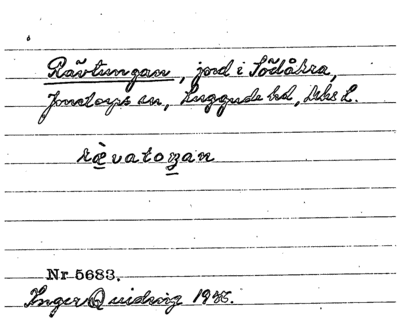 Rävtungan, jord i Södåkra,
Jonstorps sn, Luggude hd, Mhs L.
rævatoŋan
Nr 5683.
Inger Quidwig 1936.